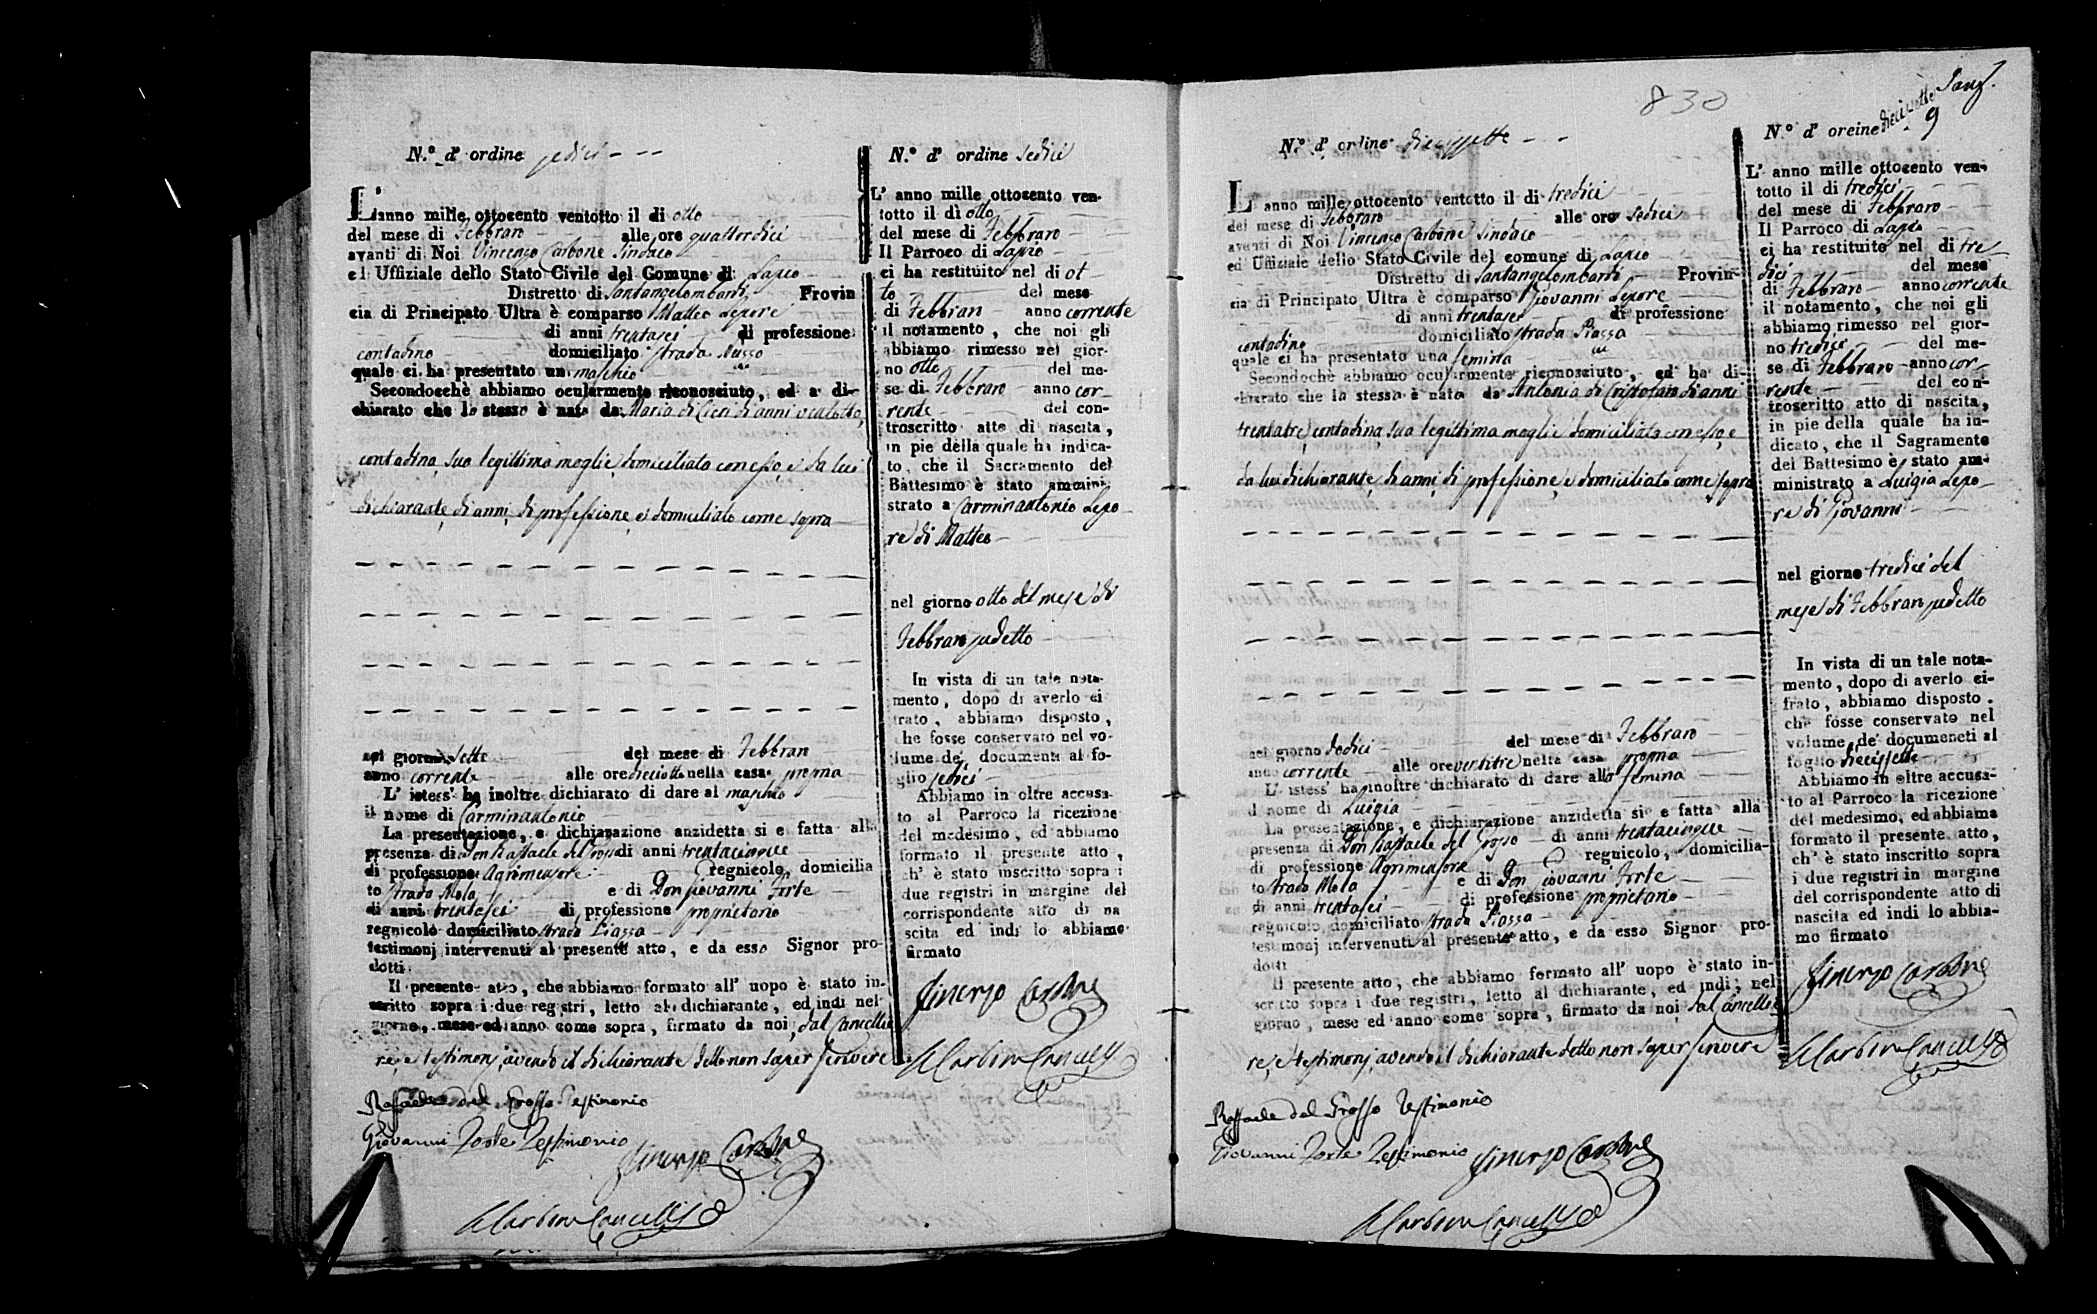 N.° d' ordine sedici
L' anno mille ottocento ventotto il di otto
del mese di Febbraro alle ore quattordici
avanti di Noi Vincenzo Carbone Sindaco
ed Uffiziale dello Stato Civile del Comune di Lapio
Distretto di Santangelombardi Provin
cia di Principato Ultra è comparso Matteo Lepore
di anni trentasei di professione
contadino domiciliato strada
quale ci ha presentato un maschio
Secondocchè abbiamo ocularmente riconosciuto, ed a di-
chiarato che lo stesso è nato da Maria di Cicri di anni ventotto,
contadina sua legittima moglie domiciliata con esso, e da lui
dichiarante, di anni, di professione, e domiciliato come sopra
nel giorno sette del mese di Febbraro
anno corrente alle ore dieciotto nella casa propria
L' istess' ha inoltre dichiarato di dare al maschio
il nome di Carminantonio
La presentazione, e dichiarazione anzidetta si e fatta alla
presenza di Don Raffaele del Grosso di anni trentacinque
di professione Agrimensore regnicolo, domicilia
to strada Mola e di Don Giovanni Forte
di anni trentasei di professione proprietario
regnicolo domiciliato strada Piazza
testimonj intervenuti al presente atto, e da esso Signor pro-
dotti
Il presente atto, che abbiamo formato all' uopo è stato in-
scritto sopra i due registri, letto al dichiarante, ed indi nel
giorno, mese ed anno come sopra, firmato da noi, dal Cancellie
re, e testimonj, avendo il dichiarante detto non saper scrivere
Raffaele del Grosso Testimonio
Giovanni Forte Testimonio Vincenzo Carbone
N.° d' ordine sedici
L' anno mille ottocento ven-
totto il dì otto
del mese di Febbraro
Il Parroco di Lapio
ci ha restituito nel di ot
to del mese
di Febbraro anno corrente
il notamento, che noi gli
abbiamo rimesso nel gior-
no otto del me-
se di Febbraro anno cor-
rente del con-
troscritto atto di nascita,
in piè della quale ha indica-
to, che il Sacramento del
Battesimo è stato ammini-
strato a Carminantonio Lepo
re di Matteo
nel giorno otto del mese di
Febbraro sudetto
In vista di un tale nota-
mento, dopo di averlo ci
frato, abbiamo disposto,
che fosse conservato nel vo-
lume de' documenti al fo-
glio sedici
Abbiamo in oltre accusa-
to al Parroco la ricezione
del medesimo, ed abbiamo
formato il presente atto,
ch' è stato inscritto sopra i
due registri in margine del
corrispondente atto di na
scita ed indi lo abbiamo
firmato
Vincenzo Carbone
830
N.° d' ordine diecissette
L' anno mille ottocento ventotto il di tredici
del mese di Febbraro alle ore sedici
avanti di Noi Vincenzo Carbone Sindaco
ed Uffiziale dello Stato Civile del comune di Lapio
Distretto di Santangelombardi Provin-
cia di Principato Ultra è comparso Giovanni Lepore
di anni trentasei di professione
contadino domiciliato strada Piazza
quale ci ha presentato una femina
Secondochè abbiamo ocularmente riconosciuto, ed ha di-
chiarato che la stessa è nata da Antonia di Cristofaro di anni
trentatre, contadina, sua legittima moglie domiciliata con esso, e
da lui dichiarante, di anni, di professione, e domiciliato come sopra
nel giorno dodici del mese di Febbraro
anno corrente alle ore ventitre nella casa propria
L' istess' ha inoltre dichiarato di dare alla femina
il nome di Luigia
La presentazione, e dichiarazione anzidetta si e fatta alla
presenza di Don Raffaele del Grosso di anni trentacinque
di professione Agrimensore regnicolo, domicilia-
to strada Mola e di Don Giovanni Forte
di anni trentasei di professione proprietario
regnicolo domiciliato strada Piazza
testimonj intervenuti al presente atto, e da esso Signor pro-
dotti
Il presente atto, che abbiamo formato all' uopo è stato in-
scritto sopra i due registri, letto al dichiarante, ed indi, nel
giorno, mese ed anno come sopra, firmato da noi dal Cancellie
re, e testimonj, avendo il dichiarante detto non saper scrivere
Raffaele del Grosso Testimonio
Giovanni Forte Testimonio Vincenzo Carbone
9
N.° d' oreine diecissette
L' anno mille ottocento ven-
totto il di tredici
del mese di Febbraro
Il Parroco di Lapio
ci ha restituito nel di tre
dici del mese
di Febbraro anno corrente
il notamento, che noi gli
abbiamo rimesso nel gior-
no tredici del me-
se di Febbraro anno cor-
rente del con-
troscritto atto di nascita,
in piè della quale ha in-
dicato, che il Sagramento
del Battesimo è stato am-
ministrato a Luigia Lepo-
re di Giovanni
nel giorno tredici del
mese di Febbraro sudetto
In vista di un tale nota-
mento, dopo di averlo ci-
frato, abbiamo disposto.
che fosse conservato nel
volume de' documeneti al
foglio diecissette
Abbiamo in oltre accusa-
to al Parroco la ricezione
del medesimo, ed abbiamo
formato il presente atto,
ch' è stato inscritto sopra
i due registri in margine
del corrispondente atto di
nascita ed indi lo abbia-
mo firmato
Vincenzo Carbone